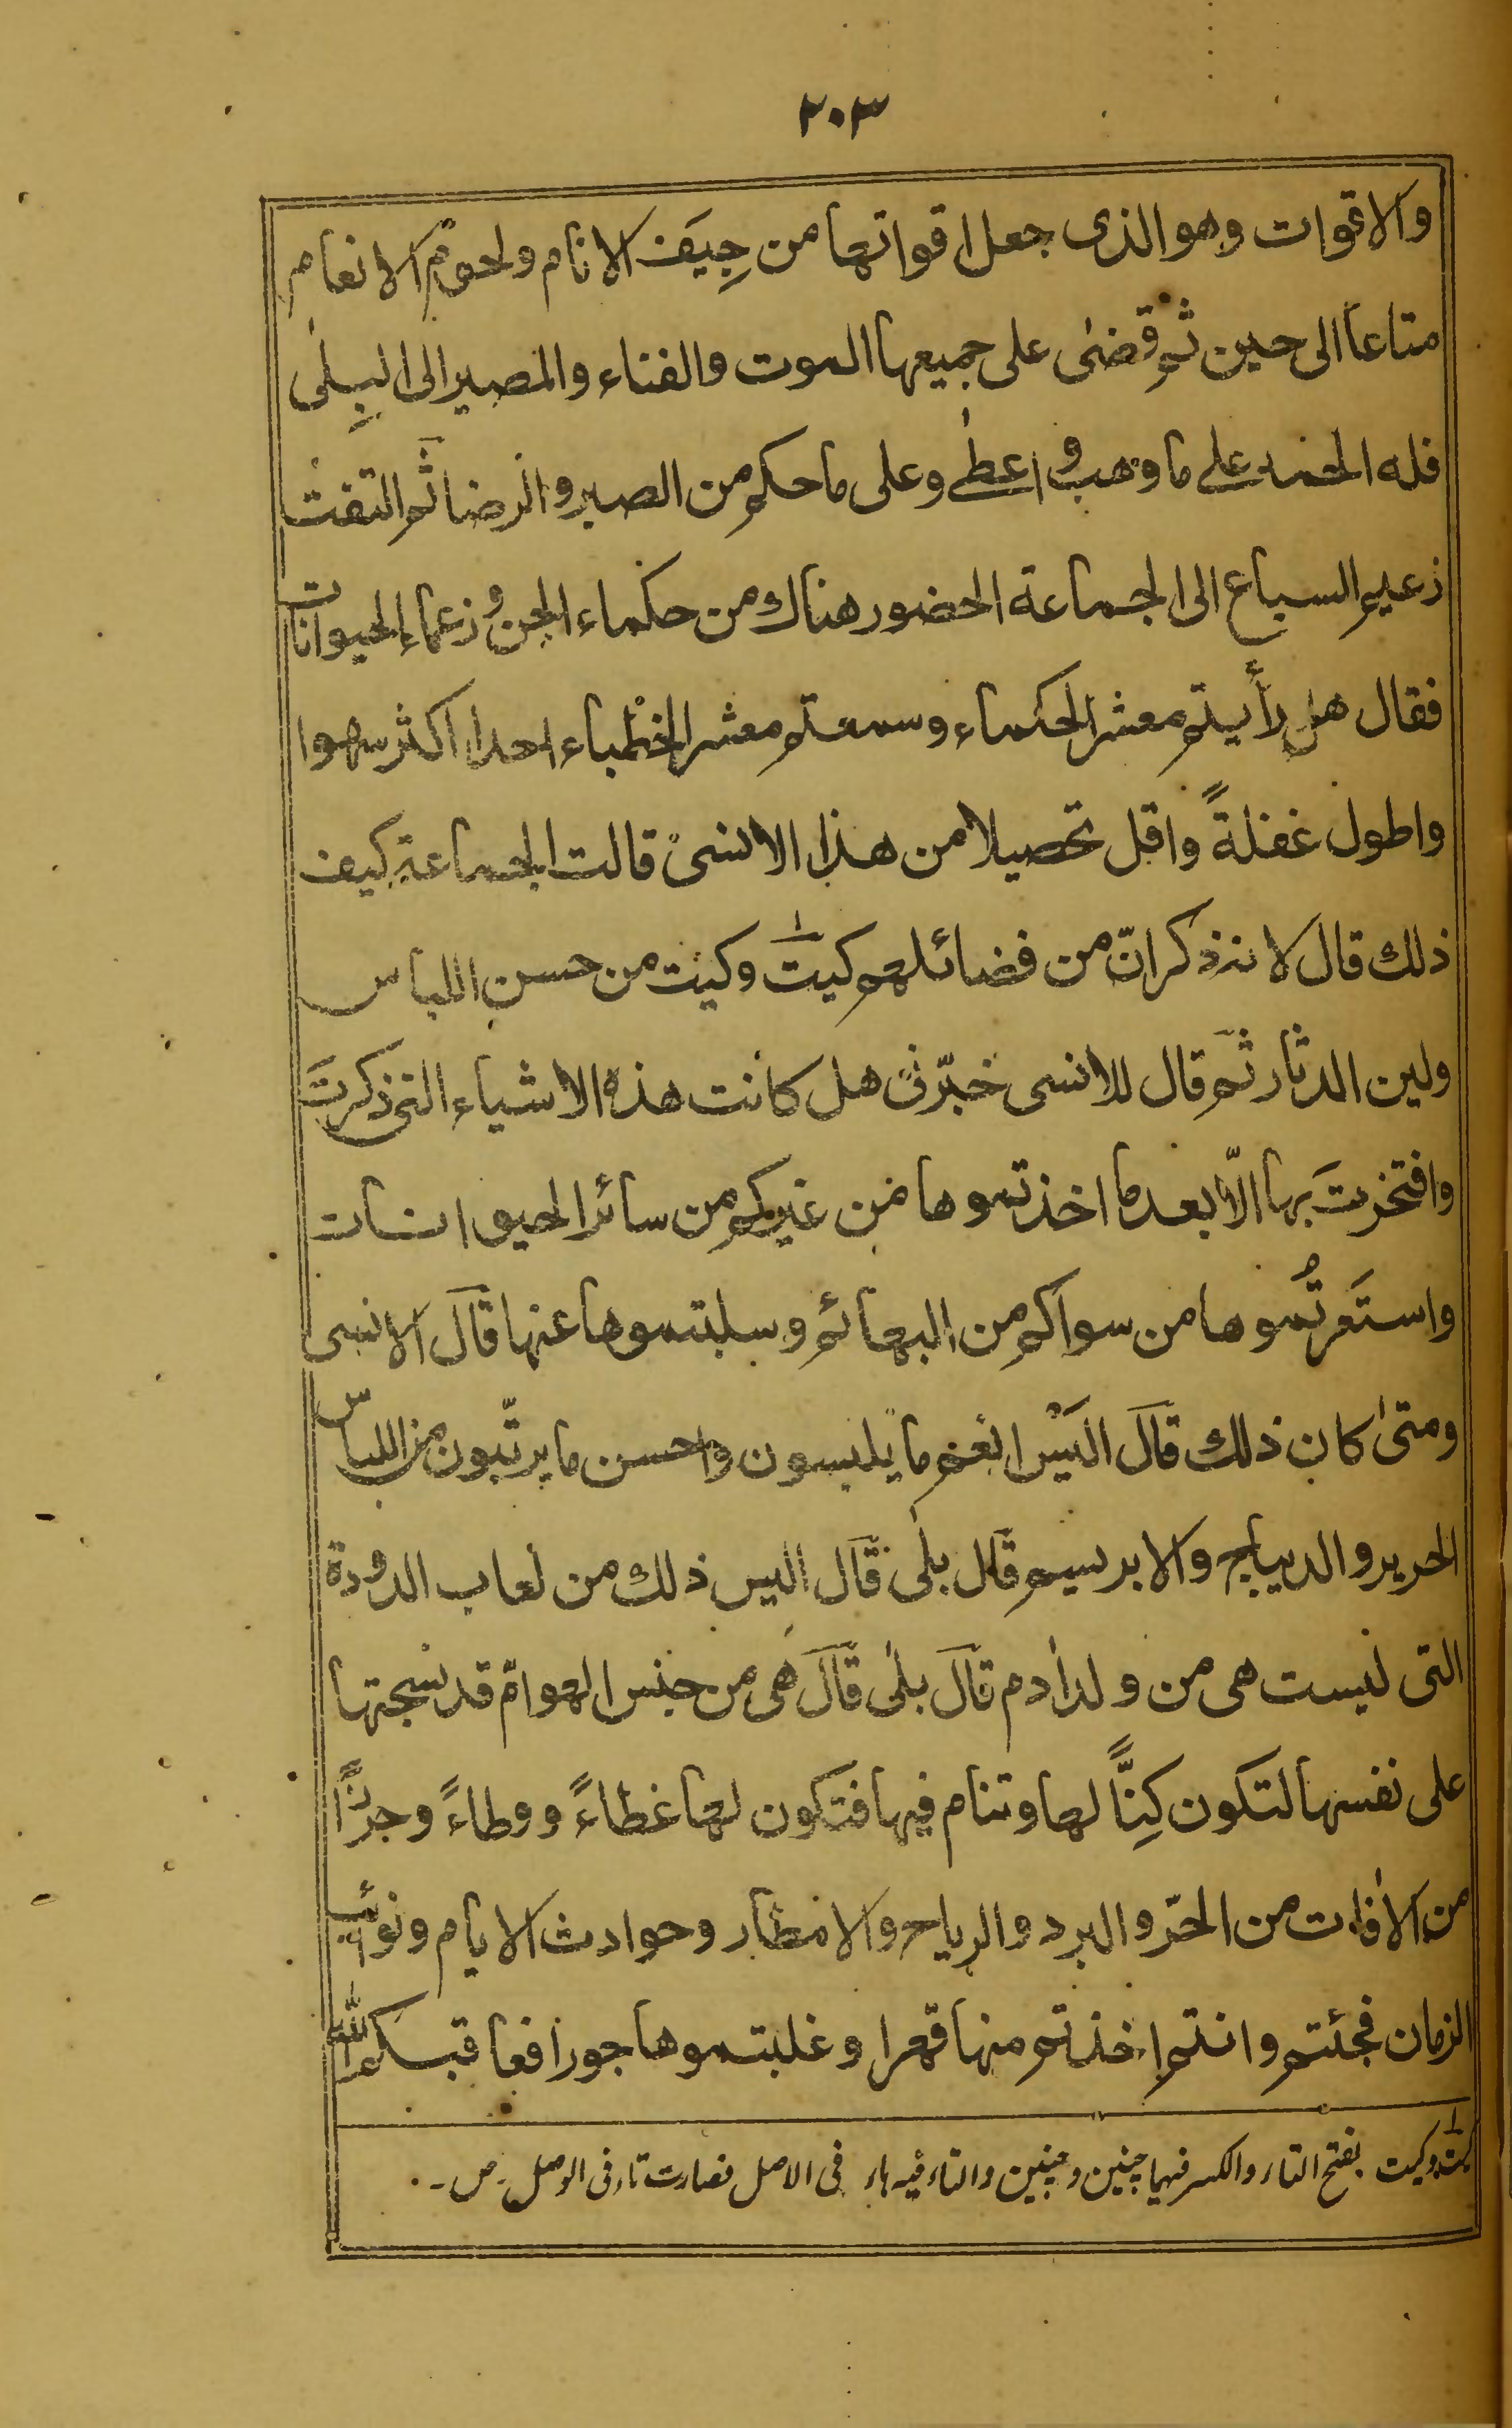 ٢٠٣
والاقوات وهو الذى جعل اقواتها من جِيَف الانام ولحوم الانعام
متاعا الى حين ثم قضىٰ على جميعها الموت والفناء والمصير الى البِلىٰ
فله الحمد على ما وهب و اعطىٰ وعلى ما حكم من الصبر والرضا ثم التفت
زعيم السباع الى الجماعة الحضور هناك من حكماء الجن و زعماء الحيوانات
فقال هل رأيتم معشر الحكماء وسمعتم معشر الخطباء احدا اكثر سهوا
واطول غفلةً واقل تحصيلا من هذا الانسى قالت الجماعة كيف
ذلك قال لانه ذكر انّ من فضائلهم كيتَ وكيت من حسن اللباس
ولين الدثار ثم قال للانسى خبّرنى هل كانت هذه الاشياء التى ذكرتَ
وافتخرتَ بها الّا بعد ما اخذتموها من غيركم من سائر الحيوانات
واستَعرتُموها من سواكم من البهائم وسلبتموها عنها قال الانسى
ومتىٰ كان ذلك قال اليس انعم ما يلبسون واحسن ما يرتّبون من اللباس
الحرير والديباج والابريسم قال بلىٰ قال اليس ذلك من لعاب الدودة
التى ليست هى من ولد اٰدم قال بلىٰ قال هى من جنس الهوامّ قد نسجتها
على نفسها لتكون كِنًّا لها وتنام فيها فتكون لها غطاءً ووطاءً وحرزًا
من الاٰفات من الحرّ والبرد والرياح والامطار وحوادث الايام ونوائب
الزمان فجئتم وانتم اخذتم منها قهرا وغلبتموها جورا فعاقبكم الله
كيت وكيت بفتح التاء والكسر فيهما چنين وچنين والتاء فيه هاء فى الاصل فصارت تاء فى الوصل ۔ ص ۔